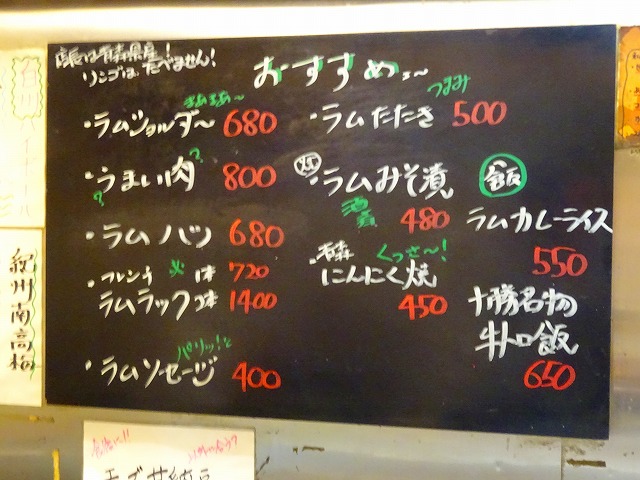 店長は青森県産！
リンゴは、たべません！
おすすめ
まぁまぁ〜
・ラムショルダー 680
・うまい肉 800
?
?
・ラムハツ 680
・フレンチ 1本 720
ラムラック 2本 1400
パリッ！と
・ラムソセージ 400
つまみ
・ラムたたき 500
・ラムみそ漬
480
青森 くっさ〜！
にんにく焼
450
飯
ラムカレーライス
550
十勝名物
牛トロ飯
650
紀州南高梅